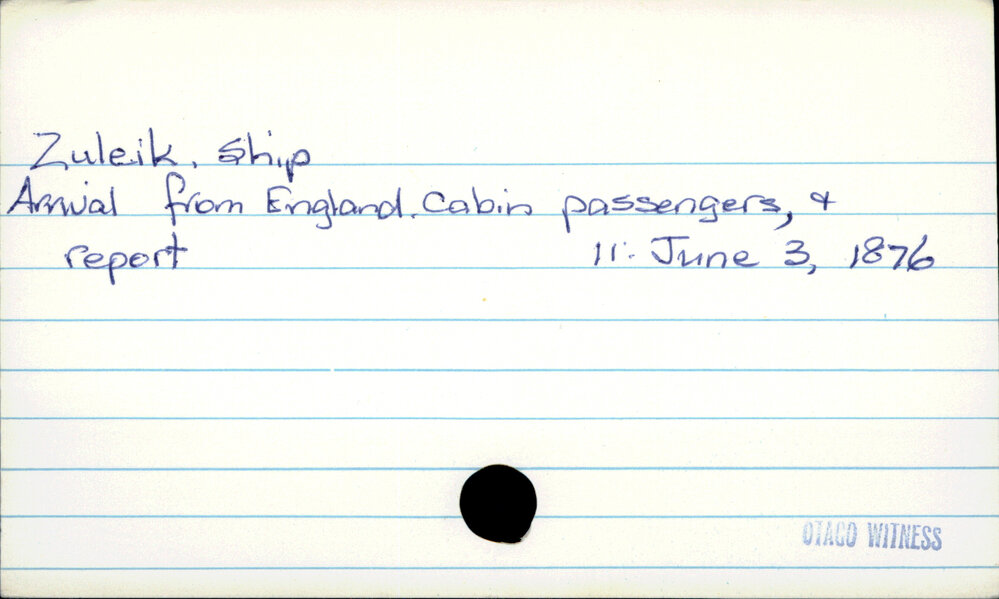 Zuleik. Ship
Arrival from England. Cabin passengers, &
report 11: June 3, 1876
OTAGO WITNESS